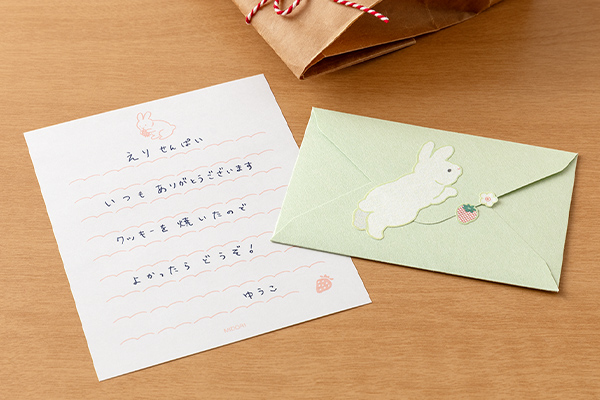 えりせんぱい
いつもありがとうございます
クッキーを焼いたので
よかったらどうぞ!
ゆうこ
MIDORI